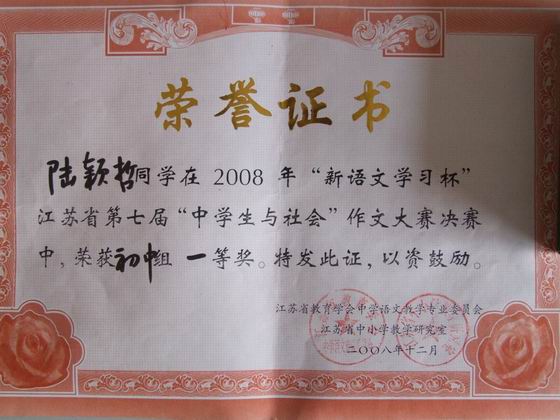 荣誉证书
陆颖哲同学在 2008 年“新语文学习杯”
江苏省第七届“中学生与社会”作文大赛决赛
中，荣获初中组 一等奖。特发此证，以资鼓励。
江苏省教育学会中学语文教学专业委员会
江苏省中小学教学研究室
二〇〇八年十二月